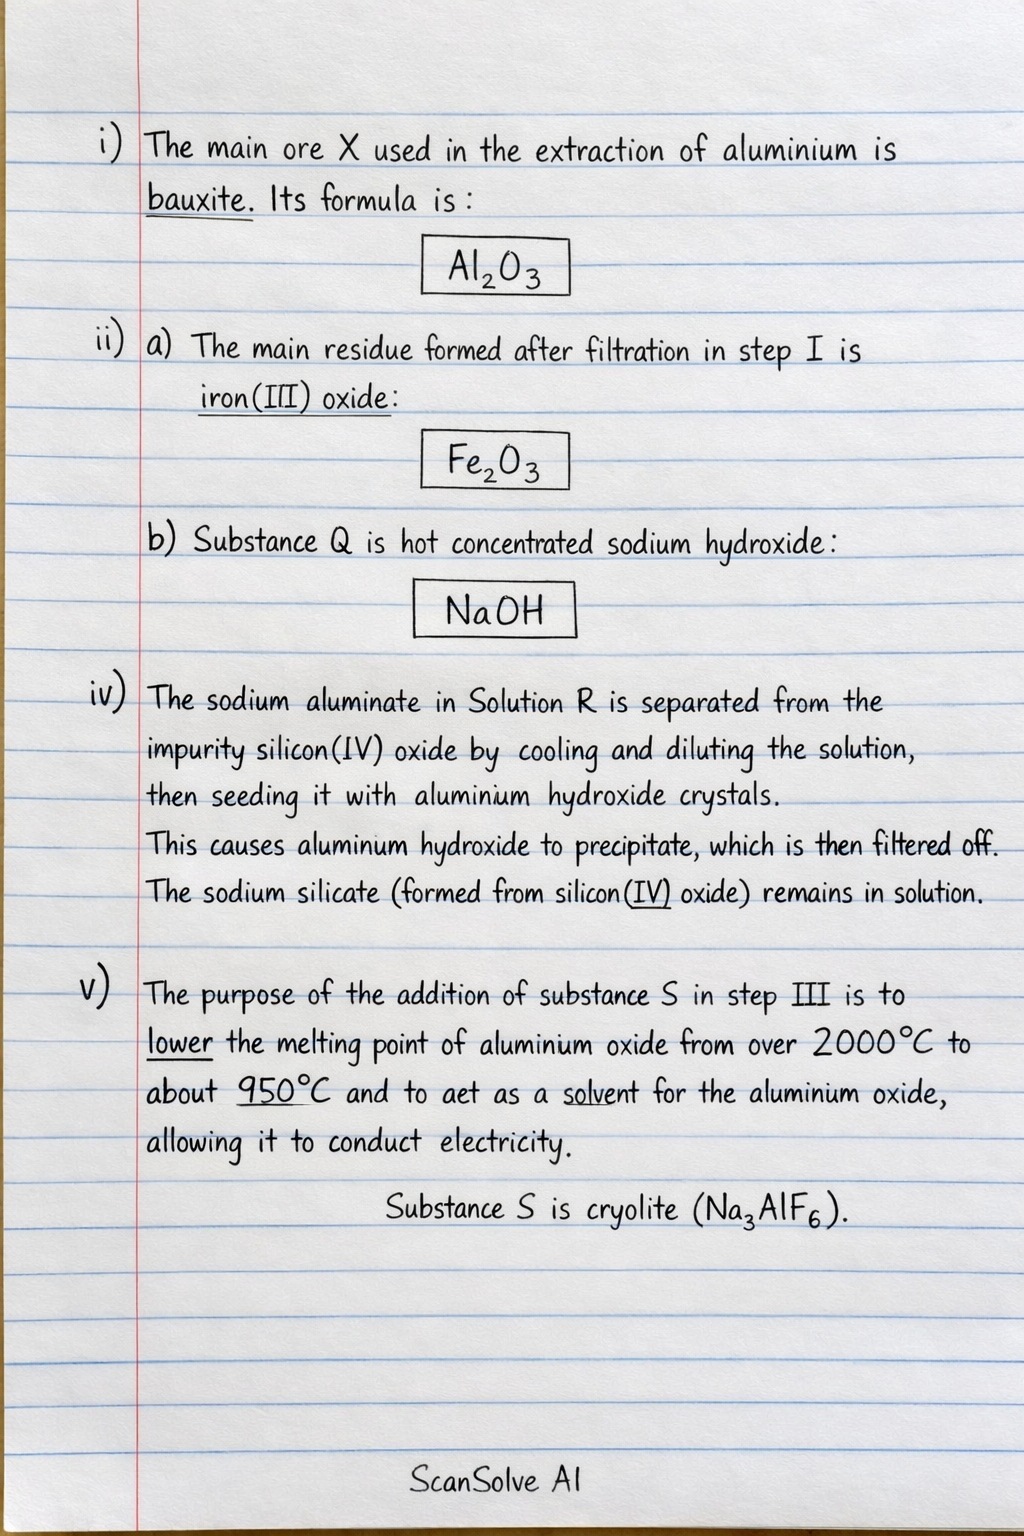 i) The main ore X used in the extraction of aluminium is
bauxite. Its formula is :
Al₂O₃
ii) a) The main residue formed after filtration in step I is
iron(III) oxide:
Fe₂O₃
b) Substance Q is hot concentrated sodium hydroxide:
NaOH
iv) The sodium aluminate in Solution R is separated from the
impurity silicon(IV) oxide by cooling and diluting the solution,
then seeding it with aluminium hydroxide crystals.
This causes aluminum hydroxide to precipitate, which is then filtered off.
The sodium silicate (formed from silicon(IV) oxide) remains in solution.
v) The purpose of the addition of substance S in step III is to
lower the melting point of aluminium oxide from over 2000°C to
about 950°C and to aet as a solvent for the aluminium oxide,
allowing it to conduct electricity.
Substance S is cryolite (Na₃AlF₆).
ScanSolve AI